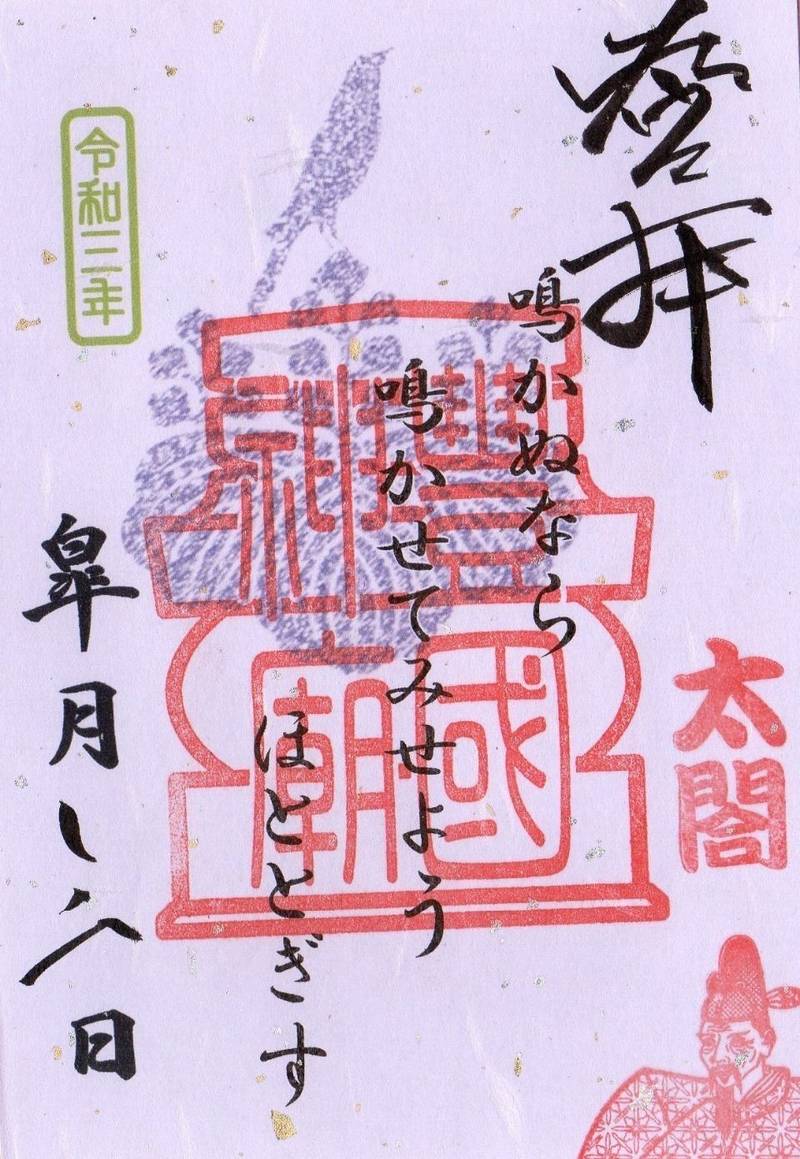 登拝
太閤
鳴かぬなら
鳴かせてみせよう
ほととぎす
豐國
神廟
令和三年
皐月日